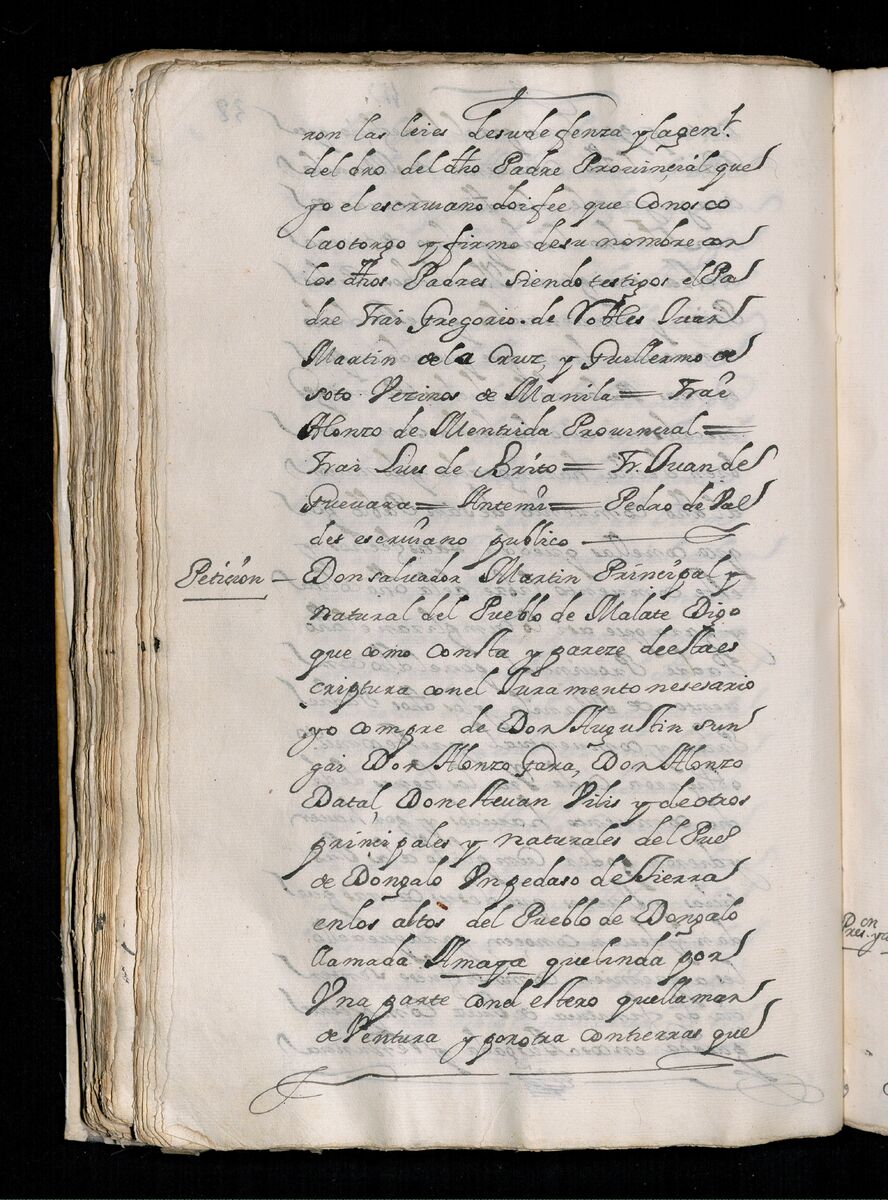 ron las leies desu defenza y la gen.l
del dro del dho Padre Provinçial que
yo el escrivano doi fee que Conosco
la otorgo y firmo desu nombre con
los dhos Padres siendo testigos el Pa
dre Frai Gregorio de Robles Juan
Martin de la Cruz, y Guillermo de
soto Vezinos de Manila = Frai
Alonzo de Mentrida Provincial =
Frai Luis de Brito = Fr. Juan de
Guevara = Antemi = Pedro de Val
des escrivano publico
Peticion - Don salvador Martin Principal y
natural del Pueblo de Malate Digo
que como Consta y pareze de esta es
criptura con el Juramento nesesario
yo compre de Don Augustin sun
gai Don Alonzo Gara, Don Alonzo
Datal, Don estevan Pilis y de otros
principales y naturales del Pueº
de Dongalo Vn pedaso de tierra
en los altos del Pueblo de Dongalo
llamada Amaga que linda por
Vna parte con el estero que llaman
de Ventura y por otra Con tierras que
Don